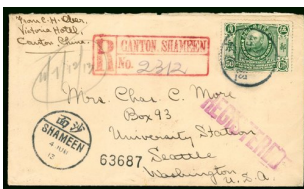 From E. H.
Victoria Hotel,
Canton, China.
R CANTON SHAMEEN
No. 2312
Mrs. Chas. C. More
Box 93
University Station
Seattle
Washington
U.S.A.
REGISTERED
SHAMEEN
63687